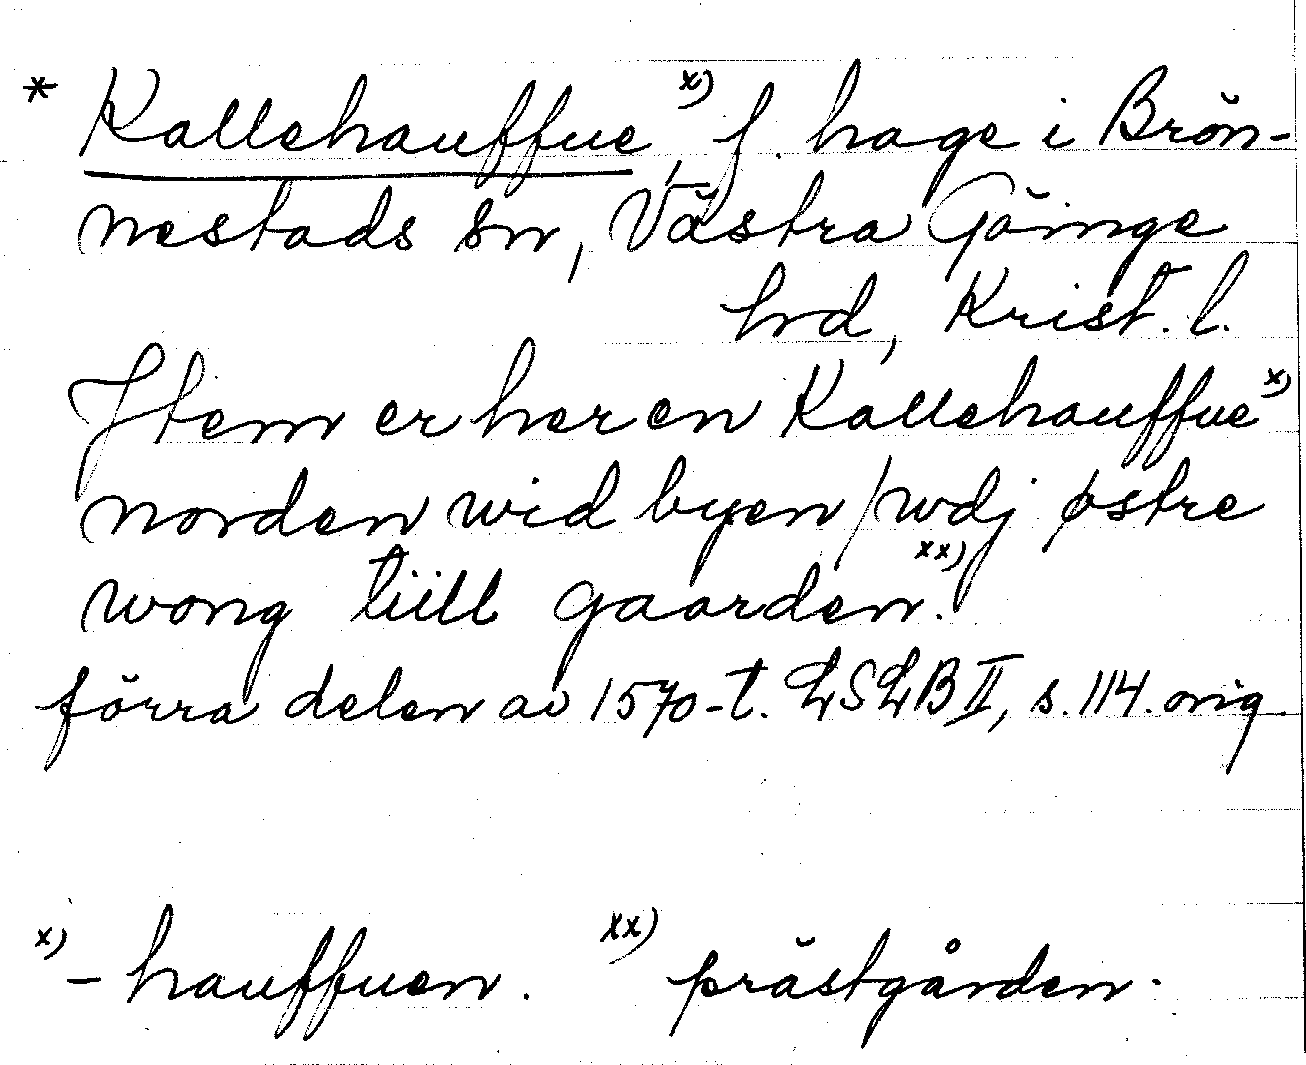 * Kallehauffue x), f. hage i Brön-
nestads sn, Västra Göinge
hrd, Krist. l.
Jtem er her en Kallehauffue x)
norden wid byen / wdj østre
wong tiill gaarden. xx)
förra delen av 1570-t. LSLB II, s. 114. orig.
x) - hauffuen. xx) prästgården.